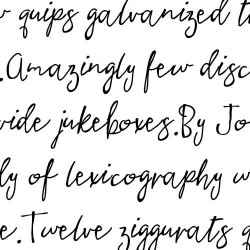 quips galvanized t
.Amazingly few disc
vide jukeboxes.By Jo
ly of lexicography w
e.Twelve ziggurats q